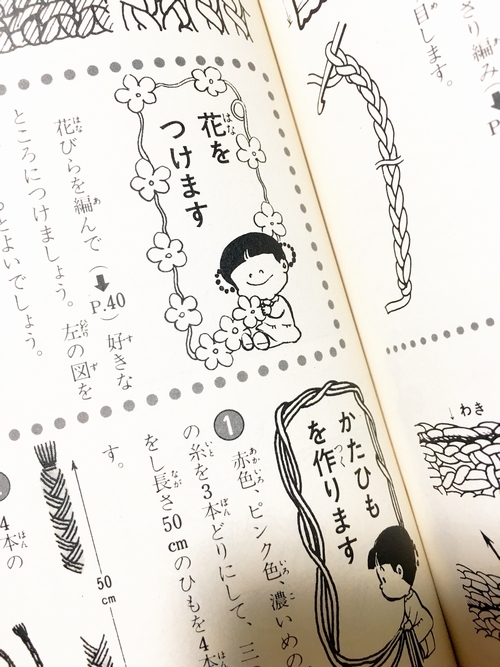 花を
つけます
花びらを編んで(➡P.40)好きな
ところにつけましょう。左の図を
とよいでしょう。
かたひも
を作ります
1 赤色、ピンク色、濃いめの
の糸を3本どりにして、三
をし長さ50cmのひもを4本
す。
50
cm
4本の
さり編み(➡P
目します。
わき